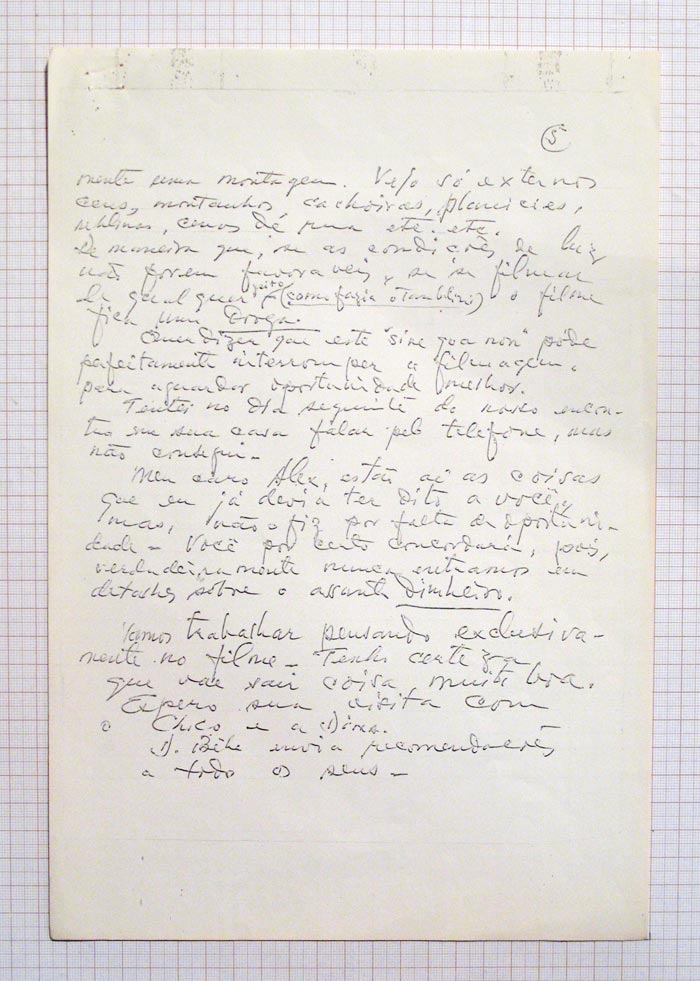 5
mente uma montagem. Vejo só externos
ceus, montanhas cachoeiras, planicies,
neblinas, cenas de rua etc. etc.
De maneira que, se as condições de luz
não forem favoraveis, se se filmar
de qualquer geito (como fazia o Tamblini) o filme
fica uma Droga.
Quer dizer que este "sine qua non" póde
perfeitamente interromper a filmagem.
para aguardar oportunidade melhor.
Tentei no dia seguinte do nosso encon-
tro em sua casa falar pelo telefone, mas
não consegui.-
Meu caro Alex, estão aí as coisas
que eu já devia ter dito a você,
mas, não o fiz por falta de oportuni-
dade - Você por certo concordará, pois,
verdadeiramente nunca entramos em
detalhes sobre o assunto dinheiro.
Vamos trabalhar pensando exclusiva-
mente no filme - Tenho certeza
que vae sair coisa muito boa.
Espero sua visita com
o Chico e a Dora.
D. Bêbe envia recomendações
a todo os seus -